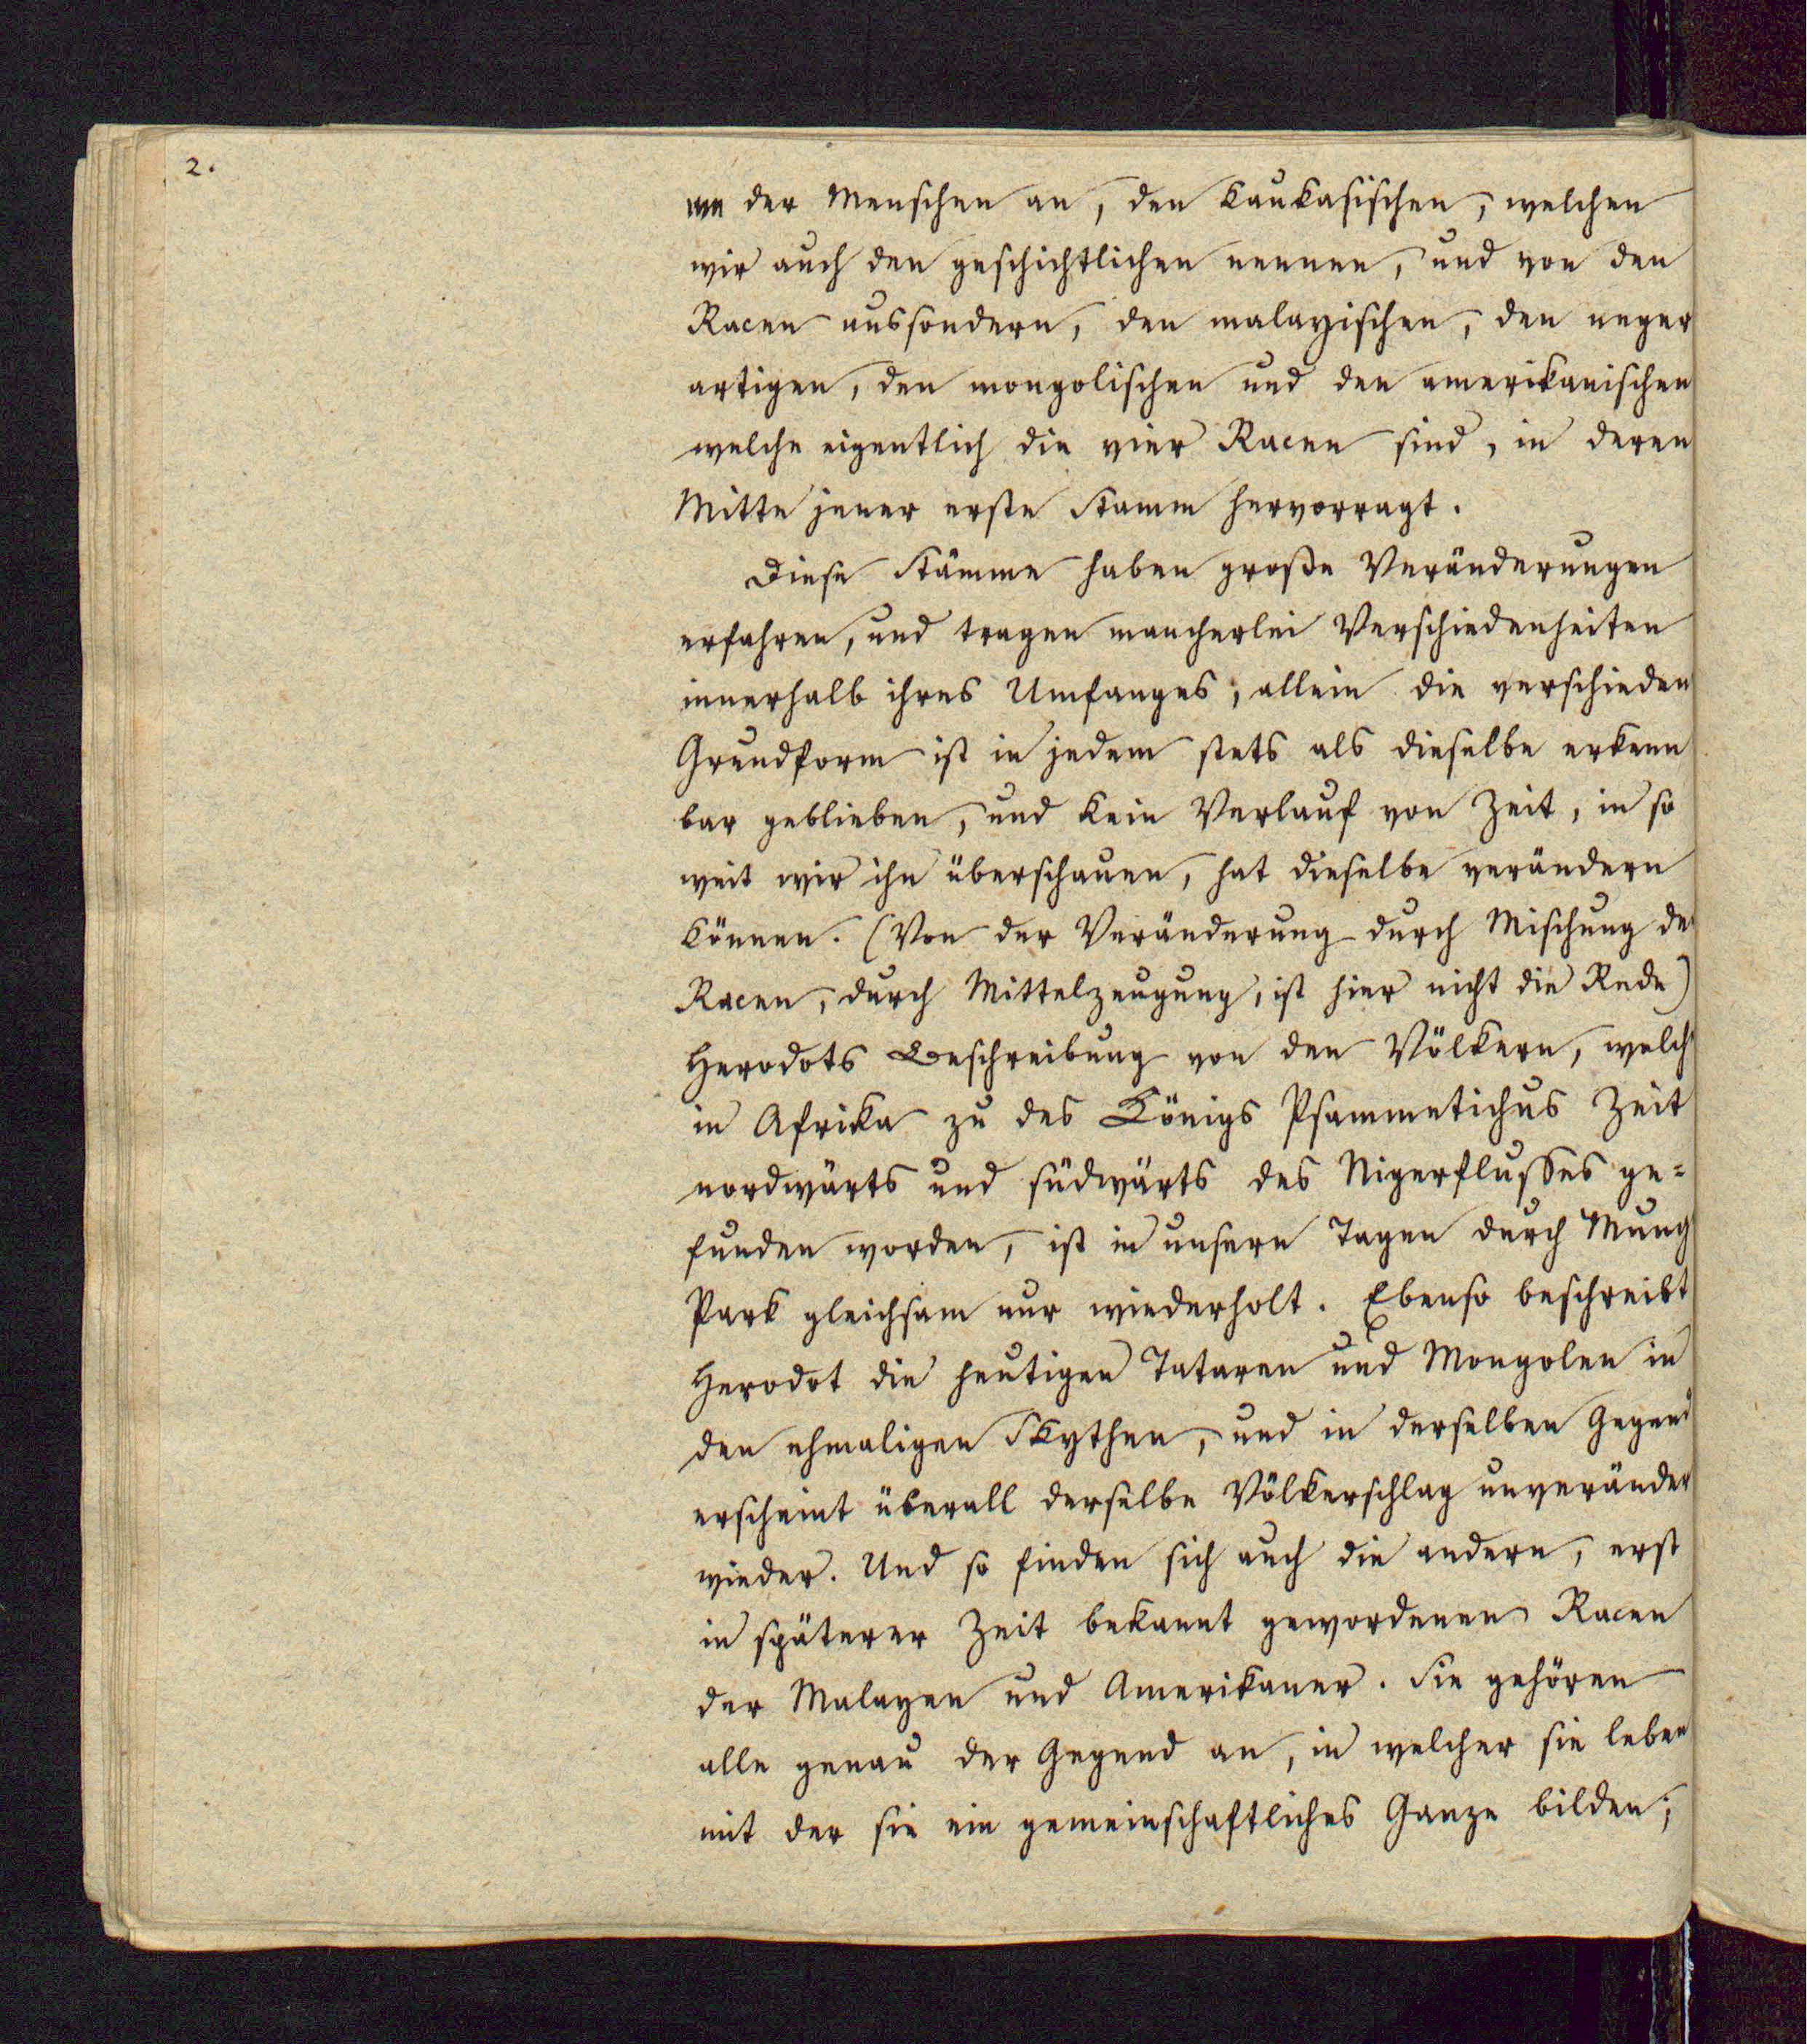 2.
me der Menschen an, den kaukasischen, welchen
wir auch den geschichtlichen nennen, und von den
Racen aussondern, den malayischen, den neger
artigen, den mongolischen und den amerikanischen
welche eigentlich die vier Racen sind, in deren
Mitte jener erste Stamm hervorragt.
Diese Stämme haben große Veränderungen
erfahren, und tragen mancherlei Verschiedenheiten
innerhalb ihres Umfanges; allein die verschieden
Grundform ist in jedem stets als dieselbe erkenn
bar geblieben, und kein Verlauf von Zeit, in so
weit wir ihn überschauen, hat dieselbe verändern
können. (Von der Veränderung durch Mischung de
Racen, durch Mittelzeugung, ist hier nicht die Rede)
Herodots Beschreibung von den Völkern, welch
in Afrika zu des Königs Psammetichus Zeit
nordwärts und südwärts des Nigerflusses ge=
funden worden, ist in unsern Tagen durch Mung
Park gleichsam nur wiederholt. Ebenso beschreibt
Herodot die heutigen Tataren und Mongolen in
den ehmaligen Skythen, und in derselben Gegend
erscheint überall derselbe Völkerschlag unveränder
wieder. Und so finden sich auch die andern, erst
in späterer Zeit bekannt gewordenen Racen
der Malayen und Amerikaner. Sie gehören
alle genau der Gegend an, in welcher sie leben
mit der sie ein gemeinschaftliches Ganze bilden;